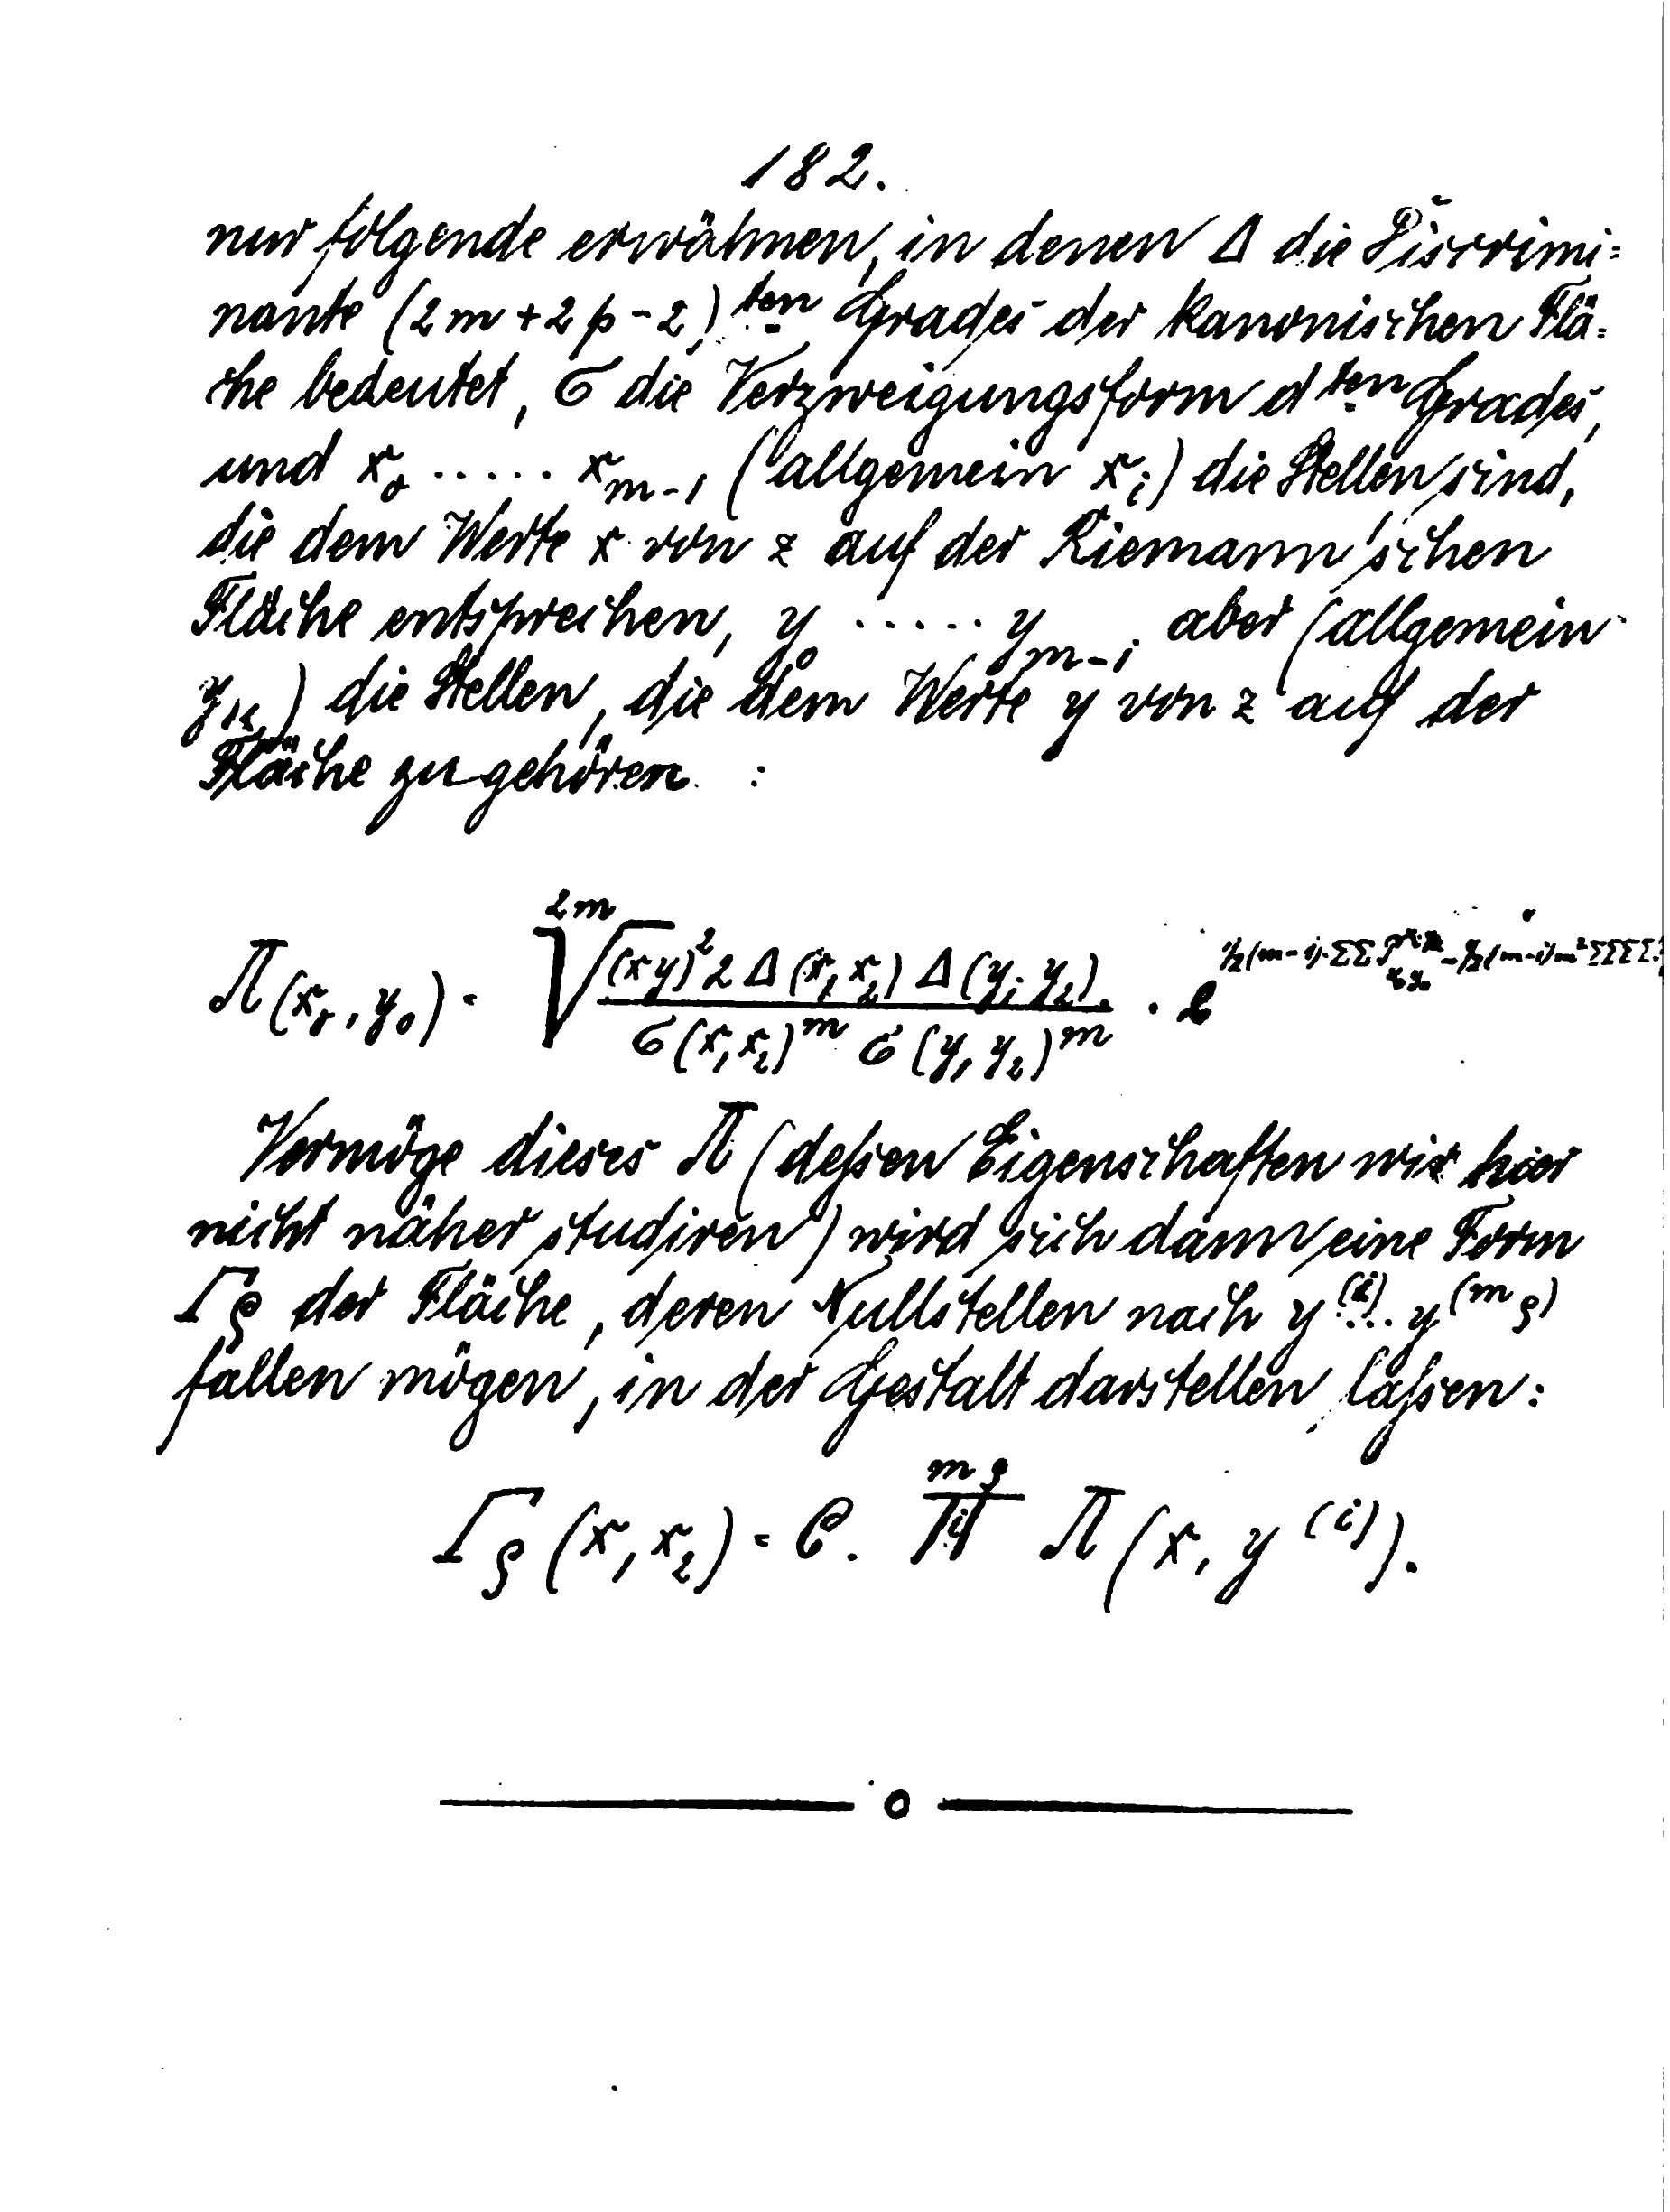 182.
nur folgende erwähnen, in denen Δ die Discrimi-
nante (2m + 2p - 2)ten Grades der kanonischen Flä-
che bedeutet, σ die Verzweigungsform dten Grades,
und x₀ ..... xₘ₋₁ (allgemein xᵢ) die Stellen sind,
die dem Werte x von z auf der Riemann'schen
Fläche entsprechen, y₀ ..... yₘ₋₁ aber (allgemein
yₖ) die Stellen, die dem Werte y von z auf der
Fläche zugehören :
Π(x₀, y₀) = \sqrt[2m]{\frac{(xy)^2 2 Δ(x₁x₂) Δ(y₁y₂)}{σ(x₁x₂)^m σ(y₁y₂)^m}} . e
Vermöge dieses Π (deßen Eigenschaften wir hier
nicht näher studiren) wird sich dann eine Form
Γρ der Fläche, deren Nullstellen nach y⁽¹⁾... y⁽ᵐρ⁾
fallen mögen, in der Gestalt darstellen laßen:
Γρ (x₁x₂) = C. \prod_i^{mρ} Π(x, y⁽ⁱ⁾).